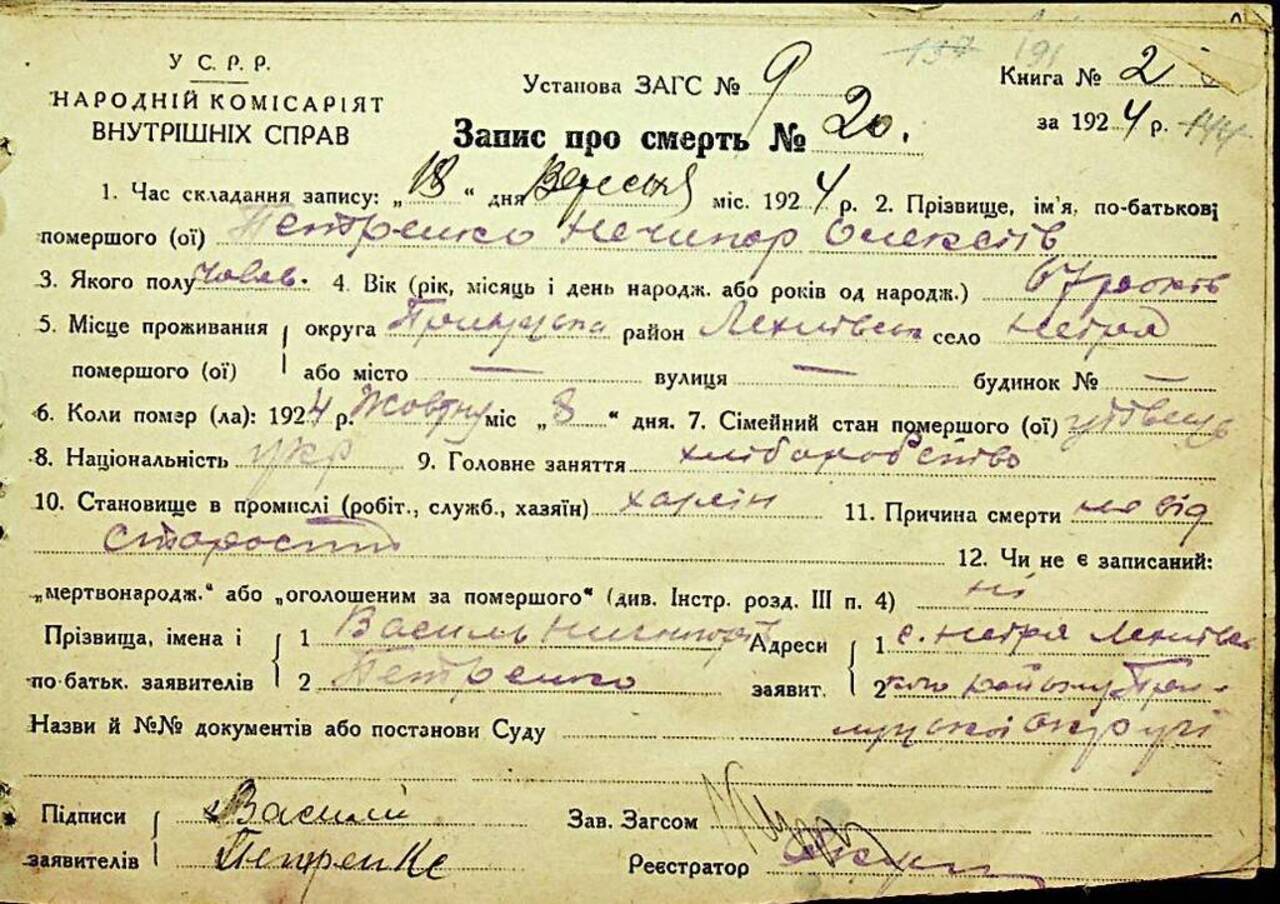 137 191
У С. Р. Р.
НАРОДНІЙ КОМІСАРІЯТ
ВНУТРІШНІХ СПРАВ
Установа ЗАГС № 9
Книга № 2
за 1924 р. 144
Запис про смерть № 20.
1. Час складання запису: „18“ дня Вересня міс. 1924 р. 2. Прізвище, ім'я, по-батькові
помершого (ої) Петренко Нечипор Олексіїв
3. Якого полу Чолов. 4. Вік (рік, місяць і день народж. або років од народж.) 67 років
5. Місце проживання округа Прилуцька район Лехнівськ село
помершого (ої) або місто — вулиця — будинок № —
6. Коли помер (ла): 1924 р. Жовтну міс „8“ дня. 7. Сімейний стан помершого (ої) удівець
8. Національність укр 9. Головне заняття хліборобство
10. Становище в промислі (робіт., служб., хазяїн) 11. Причина смерти від
старости
12. Чи не є записаний:
„мертвонародж.“ або „оголошеним за помершого“ (див. Інстр. розд. III п. 4) ні
Прізвища, імена і 1 Василь Адреси 1 с.
по батьк. заявителів 2 Петренко заявит. 2 кого району При-
Назви й №№ документів або постанови Суду луцької округи
Підписи Василій Зав. Загсом
заявителів Петренко Реєстратор